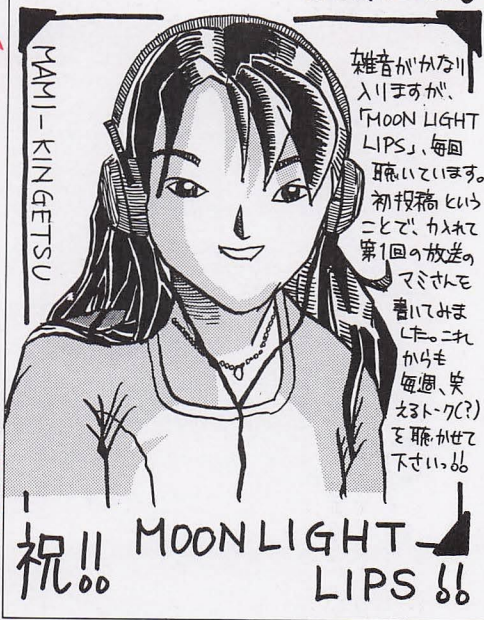 MAMI-KINGETSU
雑音がかなり
入りますが、
「MOON LIGHT
LIPS」、毎回
聴いています。
初投稿という
ことで、かれて
第1回の放送の
マミさんを
書いてみま
した。これ
からも
毎週、笑
えるトーク(?)
を聴かせて
下さいっ!!
祝!! MOONLIGHT
LIPS!!